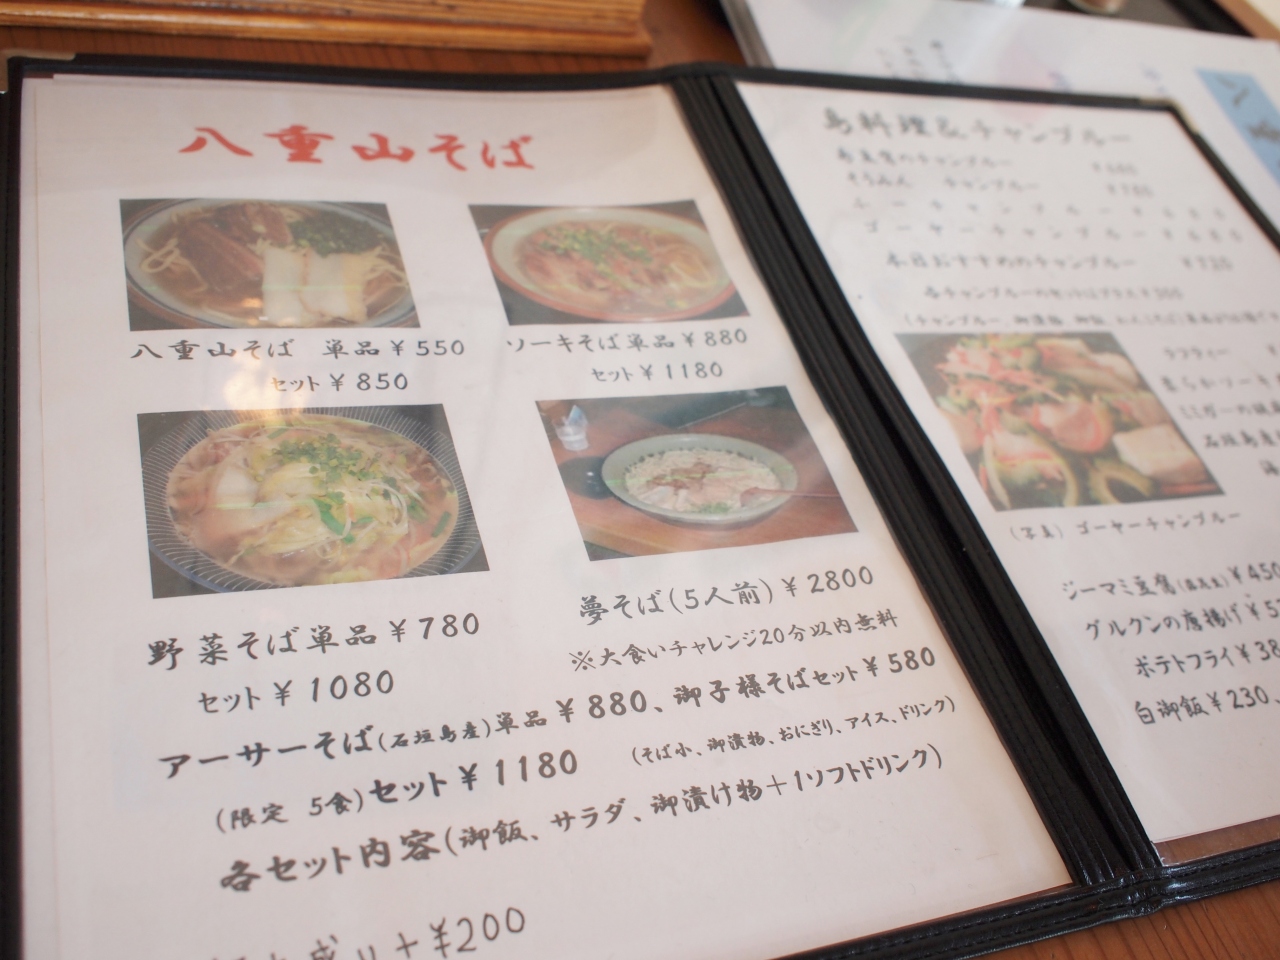 八重山そば
八重山そば 単品¥550
セット¥850
ソーキそば単品¥880
セット¥1180
野菜そば単品¥780
セット¥1080
夢そば(5人前)¥2800
※大食いチャレンジ20分以内無料
アーサーそば(石垣島産)単品¥880、御子様そばセット¥580
(限定 5食)セット¥1180 (そば小、御漬物、おにぎり、アイス、ドリンク)
各セット内容(御飯、サラダ、御漬け物+1ソフトドリンク)
+¥200
島料理&チャンプルー
チャンプルー
チャンプルー
ゴーヤーチャンプルー
本日おすすめのチャンプルー
各チャンプルーのセットはプラス¥300
ラフティー
ミミガーの
石垣島産
(写真)ゴーヤーチャンプルー
ジーマミ豆腐 ¥450
グルクンの唐揚げ¥5
ポテトフライ¥38
白御飯¥230、